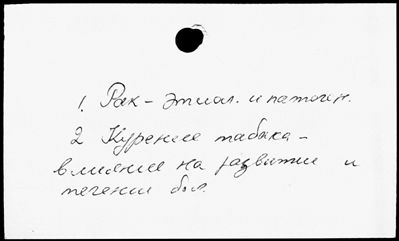 1. Рак - этиол. и патоген.
2 Курение табака -
влияние на развитие и
течение бол.